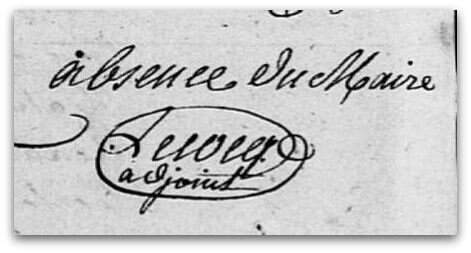 absence du Maire
adjoint